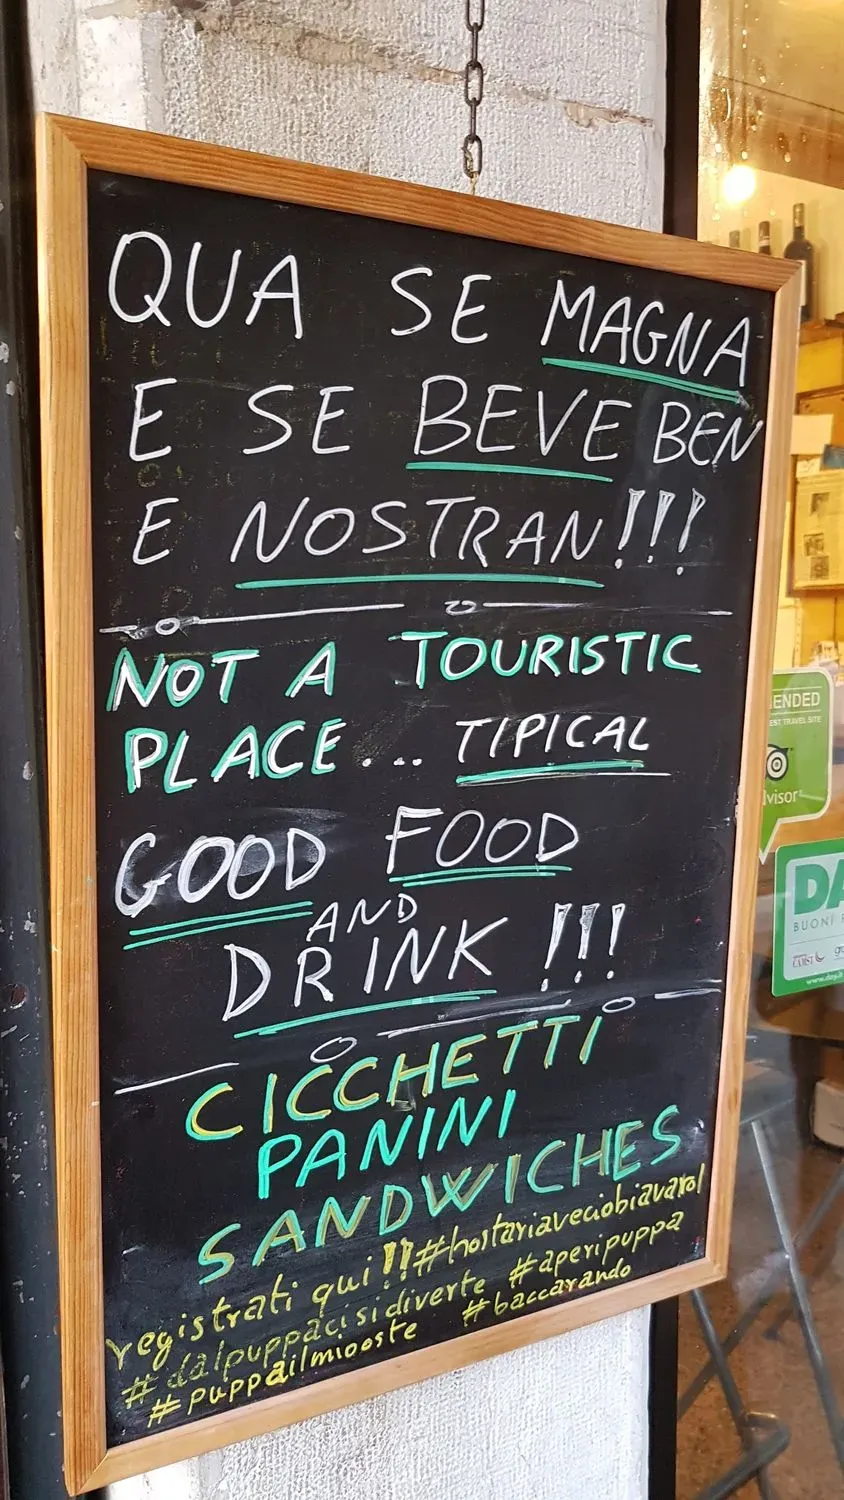 QUA SE MAGNA
E SE BEVE BEN
E NOSTRAN!!!
NOT A TOURISTIC
PLACE... TIPICAL
GOOD FOOD
AND
DRINK !!!
CICCHETTI
PANINI
SANDWICHES
registrati qui!! #hostariaveciobiavarol
#dalpuppacisidiverte #aperipuppa
#puppailmiooste #baccarando
ENDED
EST TRAVEL SITE
dvisor
DA
BUONI
CAMST
www.day.it